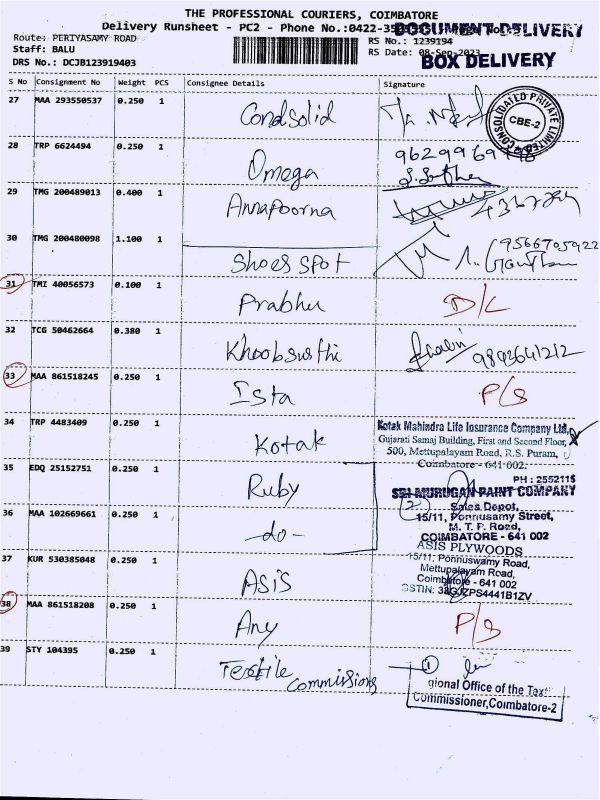 THE PROFESSIONAL COURIERS, COIMBATORE
Delivery Runsheet - PC2 - Phone No.:0422-
DOCUMENT DELIVERY
Route: PERIYASAMY ROAD
RS No.: 1239194
Staff: BALU
RS Date: 08-Sep-2023
BOX DELIVERY
DRS No.: DCJB123919403
S No Consignment No Weight PCS Consignee Details Signature
27 MAA 293550537 0.250 1 Condsolid
CONSOLIDATED PRIVATE LIMITED
CBE-2
28 TRP 6624494 0.250 1 Omega
29 TMG 200489013 0.400 1 Annapoorna
30 TMG 200480098 1.100 1 Shoes spot 9566705922
31 TMI 40056573 0.100 1 Prabhu D/L
32 TCG 50462664 0.380 1 9892641212
33 MAA 861518245 0.250 1 Ista P/S
34 TRP 4483409 0.250 1 Kotak
Kotak Mahindra Life Insurance Company Ltd,
Gujarati Samaj Building, First and Second Floor,
500, Mettupalayam Road, R.S. Puram,
Coimbatore - 641 002.
35 EDQ 25152751 0.250 1 Ruby
PH : 2552115
SRI MURUGAN PAINT COMPANY
2 Sales Depot,
15/11, Ponnusamy Street,
M. T. P. Road,
COIMBATORE - 641 002
36 MAA 102669661 0.250 1 -do-
37 KUR 530385048 0.250 1 ASIS
ASIS PLYWOODS
15/11, Ponnuswamy Road,
Mettupalayam Road,
Coimbatore - 641 002
GSTIN: 33GJZPS4441B1ZV
38 MAA 861518208 0.250 1 Any P/S
39 STY 104395 0.250 1 Textile Commissions
1
gional Office of the Text
Commissioner,Coimbatore-2